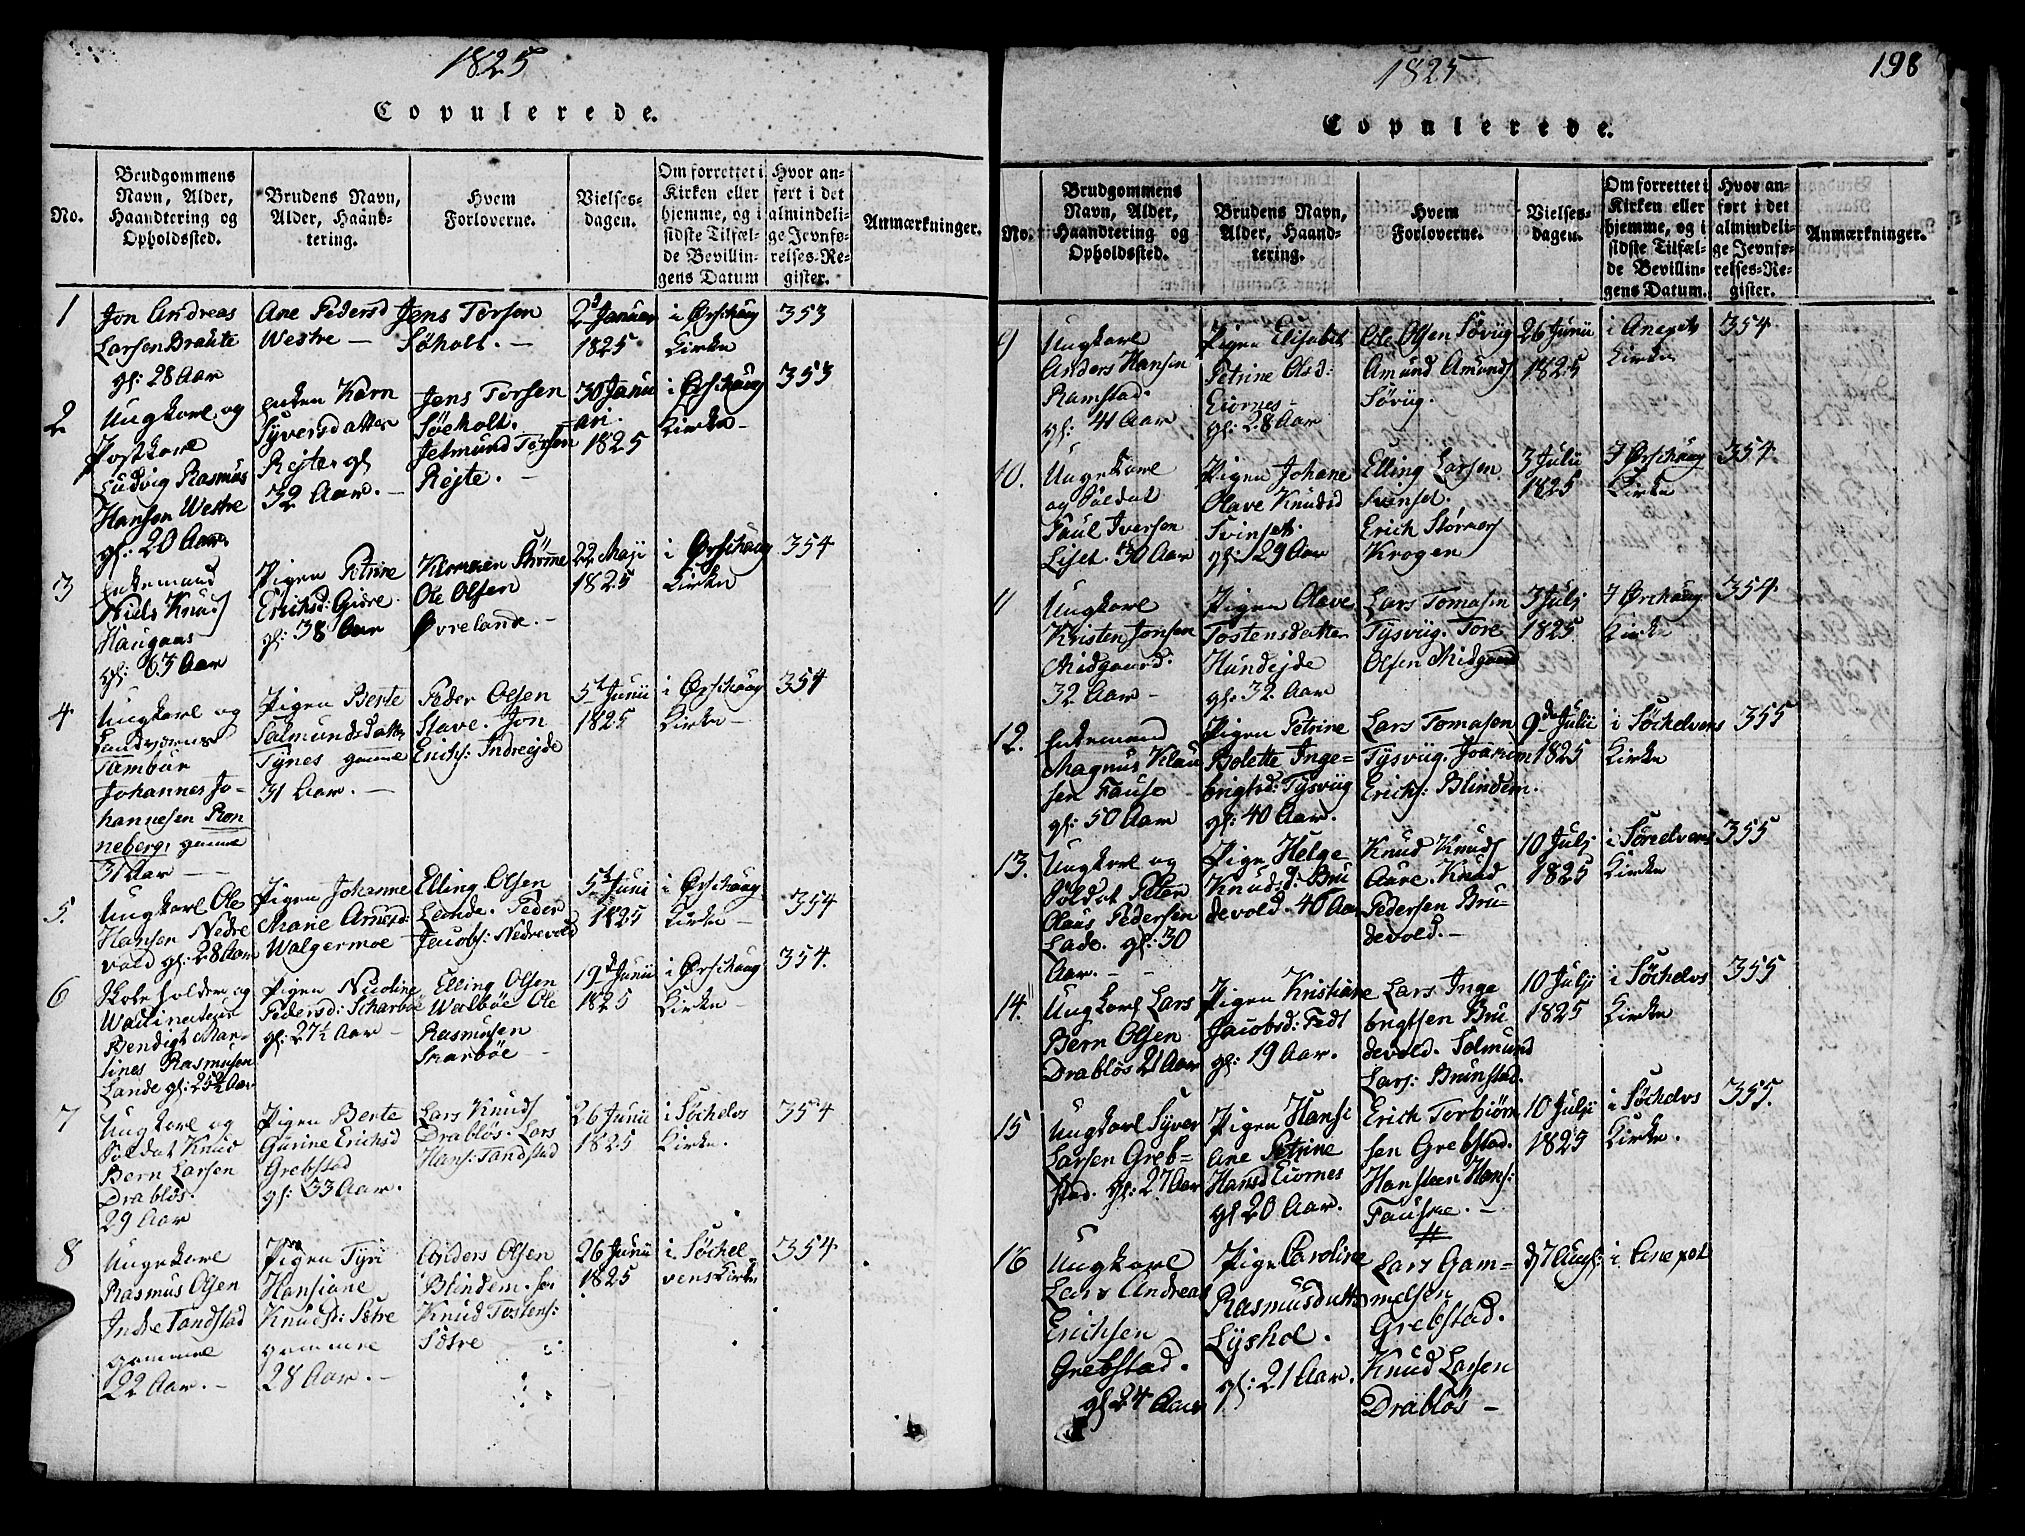 1825
Copulerede.
No.
Brudgommens
Navn, Alder,
Haandtering og
Opholdssted.
Brudens Navn,
Alder, Haand-
tering.
Hvem
Forloverne.
Vielses-
dagen.
Om forrettet i
Kirken eller
hjemme, og i
sidste Tilfæl-
de Bevillin-
gens Datum
Hvor an-
ført i det
almindeli-
ge Jevnfø-
relses-Re-
gister.
Anmærkninger.
1
Jon Andreas
Larsen Braute
gl: 28 Aar
Ane Pedersd
Westre —
Jens Torsen
Søholt. —
2d Januar
1825
i Ørschaug
Kirke
353
2
Ungkarl og
Postkarl
Ludvig Rasmus
Hansen Westre
gl: 20 Aar
Enken Karn
Syversdatter
Rejte gl
32 Aar. —
Jens Torsen
Søeholt.
Jetmund Torsen
Rejte. —
30 Janu
ari.
1825
i Ørschaug
Kirke —
353
3
Enkemand
Niels Knuds
Haugaas
gl: 63 Aar
Pigen Petrine
Erichsd: Giøre
gl: 38 Aar
Ole Olsen
Øvrelande. —
22 Maji
1825
i Ørschaug
Kirke
354
4
Ungkarl og
Landværns
Tambur
Johannes Jo-
hannesen Ron
neberg, gamme
31 Aar — —
Pigen Berte
Salmundsdatter
Tynes gamme
31 Aar. —
Peder Olsen
Stave. Jon
Erichs: Indrejde
5t Junii
1825
i Ørschaug
Kirke —
354
5.
Ungkarl Ole
Hansen Nedre
vold gl: 28 Aar
Pigen Johanne
Marie Arnesd:
Walgermoe —
Elling Olsen
Lande. Peder
Jacobs: Nedrevold
5t Juni
1825
i Ørschaug
Kirke —
354
6
Skoleholder og
Waccinateur
Bendigt Mar-
tines Rasmusen
Lande gl: 25½ Aar
Pigen Nicoline
Pedersd: Scharbøe
gl: 27½ Aar —
Elling Olsen
Walbøe Ole
Rasmusen
Skarbøe —
19d Junii
1825
i Ørschaug
Kirke —
354.
7
Ungkarl og
Soldat Knud
Bern Larsen
Drabløs.
29 Aar
Pigen Berte
Gurine Erichsd
Grebstad
gl: 33 Aar.
Lars Knuds
Drabløs. Lars
Hans: Tandstad
26 Junii
1825
i Søchelvs
Kirke.
354
8
Ungekarl
Rasmus Olsen
Indre Tandstad
gammel
22 Aar. —
Pigen Tyri
Hansiane
Knudsd: Sætre
gammel
28 Aar. —
Anders Olsen
Blindem.
Knud Tostens:
Sætre
26 Junii
1825
i Søchel
vens Kirke
354
1825
198
Copulerede.
No.
Brudgommens
Navn, Alder,
Haandtering og
Opholdssted.
Brudens Navn,
Alder, Haand-
tering.
Hvem
Forloverne.
Vielses-
dagen.
Om forrettet i
Kirken eller
hjemme, og i
sidste Tilfæl-
de Bevillin-
gens Datum.
Hvor an-
ført i det
almindeli-
ge Jevnfø-
relses-Re-
gister.
Anmærkninger.
9
Ungkarl
Anders Hansen
Ramstad.
gl: 41 Aar
Pigen Elisabet
Petrine Olsd:
Eiornes —
gl: 28 Aar
Ole Olsen Søvig
Amund Amunds
Søvig.
26 Junii
1825
i Anexets
Kirke
354
10.
Ungekarl
og Soldat
Paul Iversen
Liset 30 Aar
Pigen Johane
Olave Knudsd
Svinset
gl: 29 Aar
Elling Larsen
Svinset.
Erich Stormers
Krogen
3 Julii
1825
I Ørschaug
Kirke
354.
11
Ungkarl
Kristen Jonsen
Midgaard.
32 Aar —
Pigen Olave
Tostensdatter
Hundejde
gl: 32 Aar
Lars Tomasen
Tysvig. Tore
Olsen Midgaard
3 Julj
1825
I Ørschaug
Kirke
354
12.
Enkemand
Magnus Klau
sen Fause
gl: 50 Aar
Pigen Petrine
Bolette Inge-
brigtsd: Tysvig
gl: 40 Aar.
Lars Tomasen
Tysvig. Joakim
Erichs: Blindem.
9de Julii
1825
i Søchelvens
Kirke
355
13.
Ungkarl og
Soldat Peter
Olaus Pedersen
Lade. gl: 30
Aar. — —
Pige Helge
Knudsd: Bru
devold. 40 Aar
Knud Knuds
Aare. Knud
Pedersen Bru-
devold. —
10 Julj
1825
i Søeelvens
Kirke
355
14.
Ungkarl Lars
Bern Olsen
Drabløs 21 Aar
Pigen Kristiane
Jacobsd: Fedt
gl: 19 Aar.
Lars Inge
brigtsen Bru
devold. Salmund
Lars: Brunstad.
10 Julji
1825
i Søchelvs
Kirke
355
15
Ungkarl Syver
Larsen Greb-
stad. gl: 27 Aar
Pigen Hansi
ane Petrine
Hansd Eiornes
gl 20 Aar.
Erich Torbiørn
sen Grebstad.
Hansteen Hans:
Fauske. —
10 Julji
1825
i Søchelvs
Kirke.
355.
16
Ungkarl
Lars Andreas
Erichsen
Grebstad.
gl 24 Aar
Pige Caroline
Rasmusdatter
Lyshol.
gl: 21 Aar.
Lars Gam-
melsen
Grebstad.
Knud Larsen
Drabløs —
d 7 Augs:
i Anexet